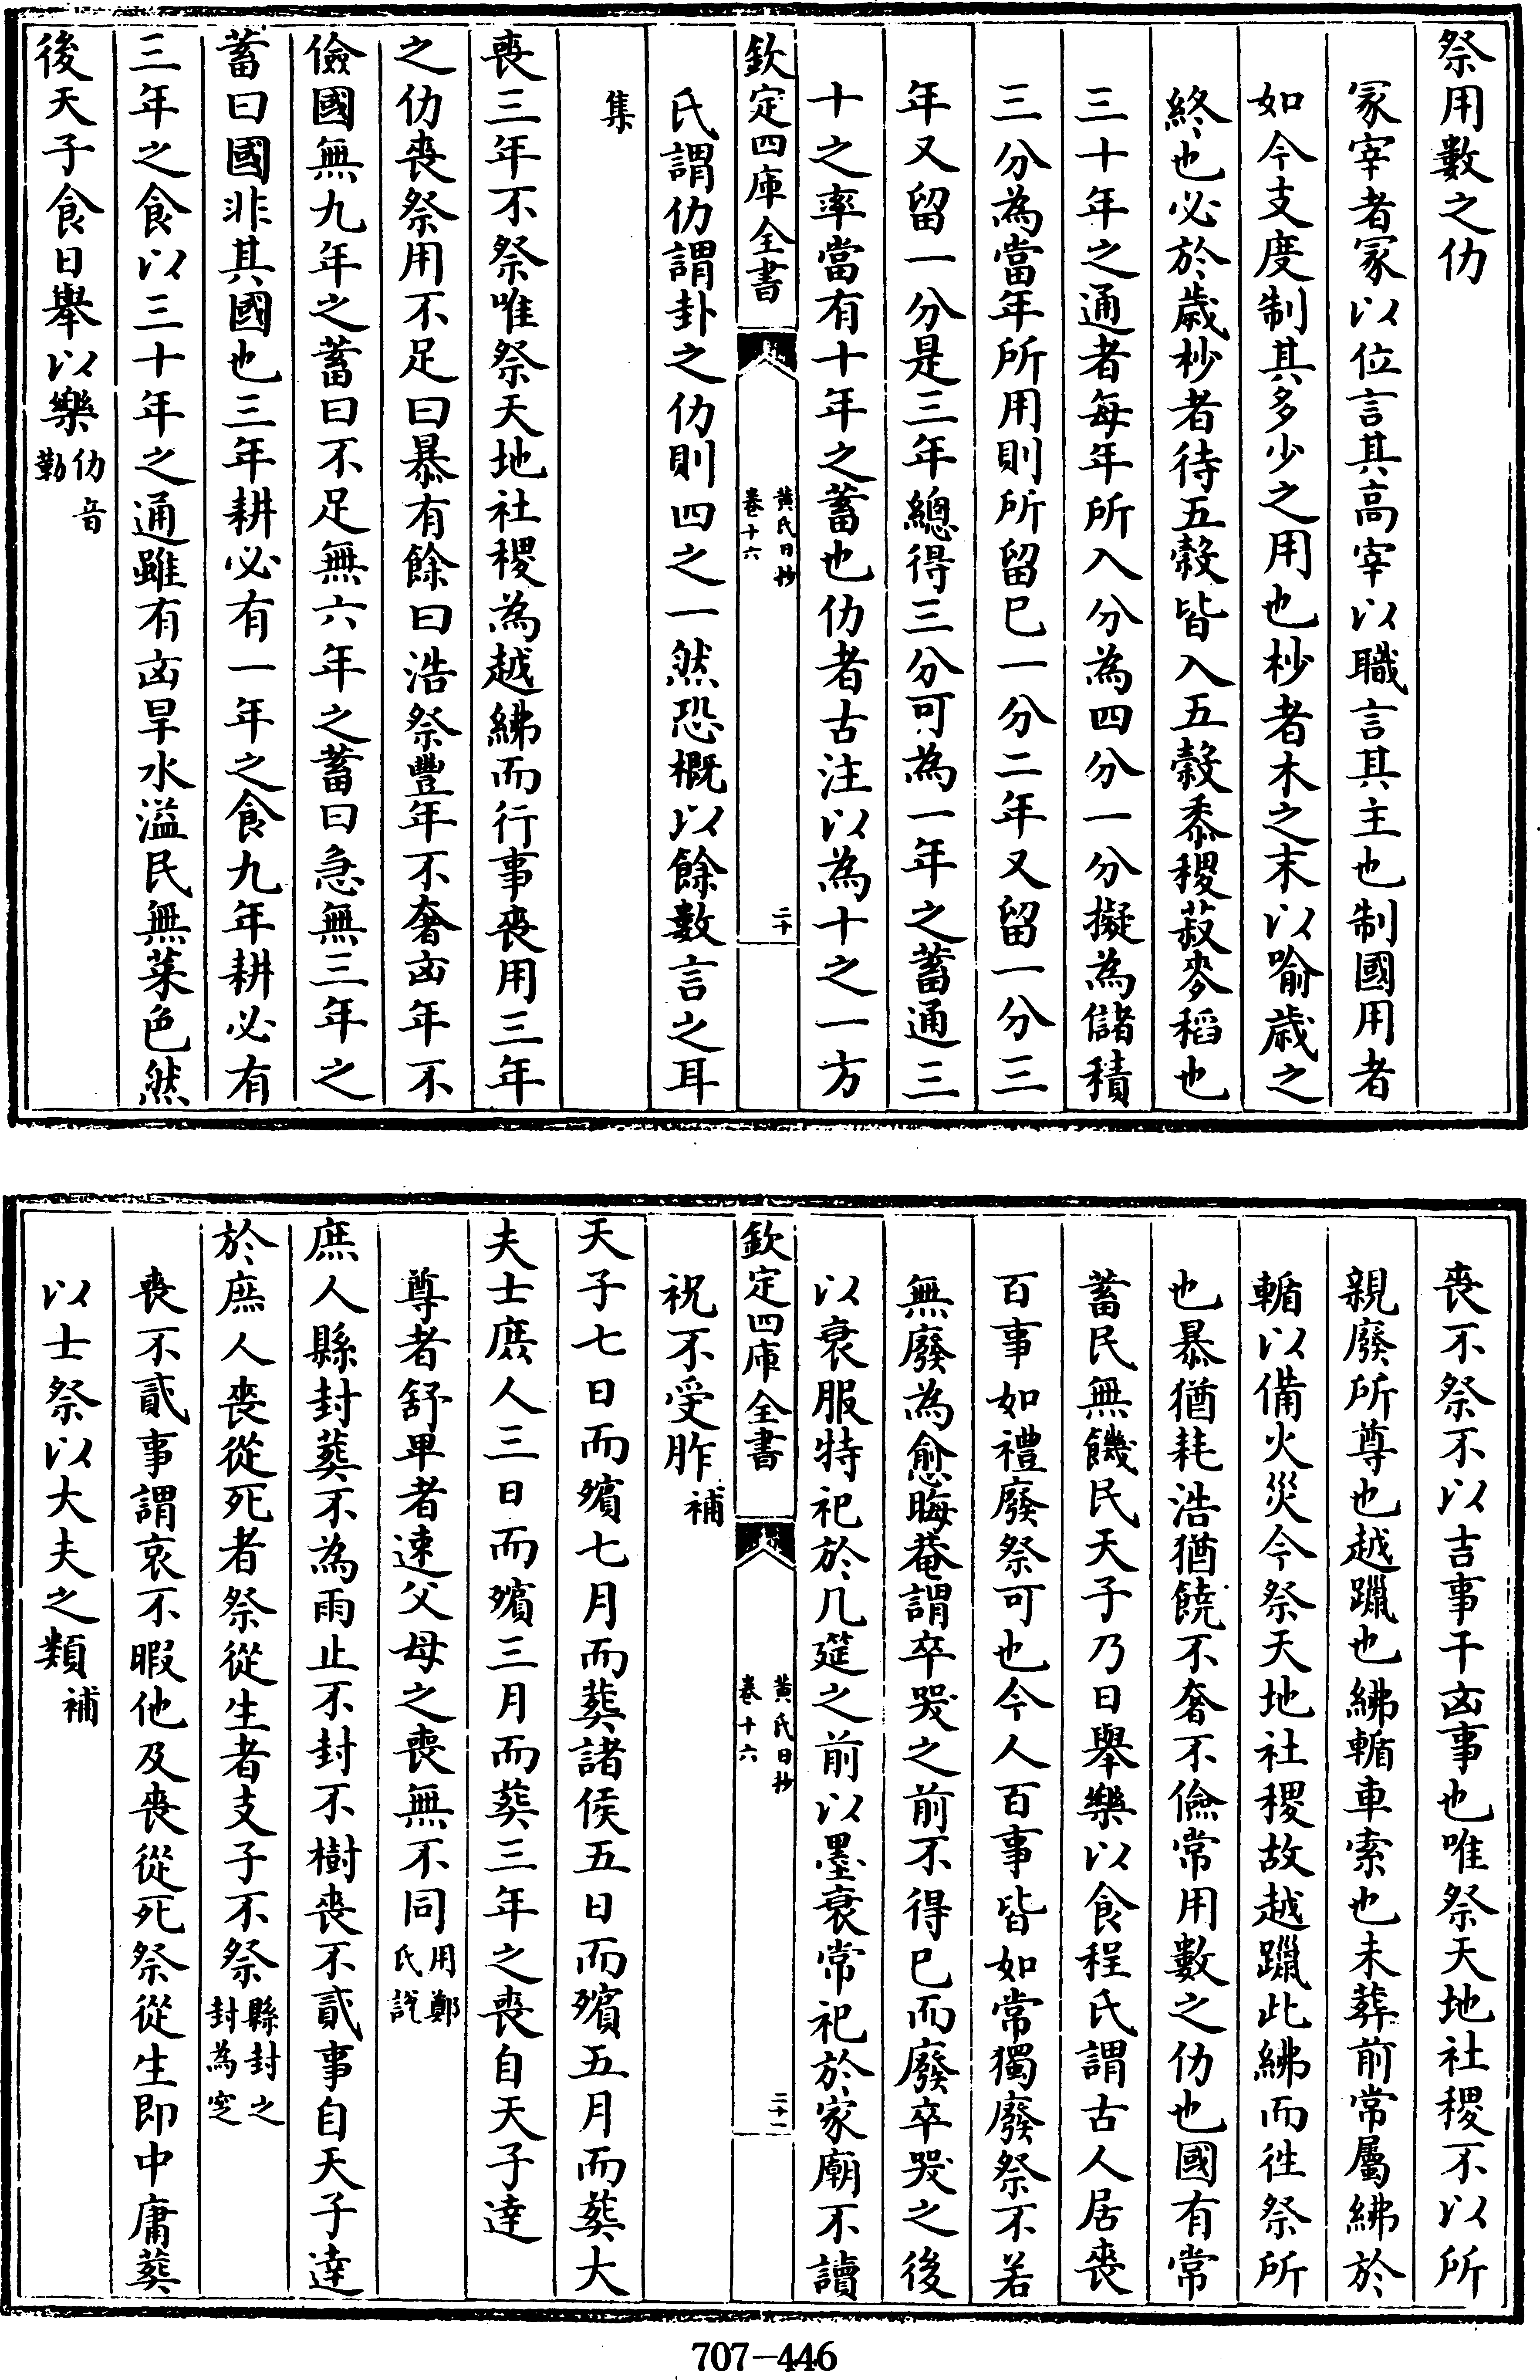 祭用數之仂
冢宰者冢以位言其高宰以職言其主也制國用者
如今支度制其多少之用也杪者木之末以喻歲之
終也必於歲杪者待五穀皆入五穀黍稷菽麥稻也
三十年之通者每年所入分為四分一分擬為儲積
三分為當年所用則所留已一分二年又留一分三
年又留一分是三年總得三分可為一年之蓄通三
十之率當有十年之蓄也仂者古注以為十之一方
欽定四庫全書
黃氏日抄
卷十六
二十
氏謂仂謂卦之仂則四之一然恐概以餘數言之耳
集
喪三年不祭唯祭天地社稷為越紼而行事喪用三年
之仂喪祭用不足曰暴有餘曰浩祭豐年不奢凶年不
儉國無九年之蓄曰不足無六年之蓄曰急無三年之
蓄曰國非其國也三年耕必有一年之食九年耕必有
三年之食以三十年之通雖有凶旱水溢民無菜色然
後天子食日舉以樂仂音
勒
喪不祭不以吉事干凶事也唯祭天地社稷不以所
親廢所尊也越躐也紼輴車索也未葬前常屬紼於
輴以備火災今祭天地社稷故越躐此紼而往祭所
也暴猶耗浩猶饒不奢不儉常用數之仂也國有常
蓄民無饑民天子乃日舉樂以食程氏謂古人居喪
百事如禮廢祭可也今人百事皆如常獨廢祭不若
無廢為愈晦菴謂卒哭之前不得已而廢卒哭之後
以衰服特祀於几筵之前以墨衰常祀於家廟不讀
欽定四庫全書
黃氏日抄
卷十六
二十一
祝不受胙補
天子七日而殯七月而葬諸侯五日而殯五月而葬大
夫士庶人三日而殯三月而葬三年之喪自天子達
尊者舒卑者速父母之喪無不同用鄭
氏說
庶人縣封葬不為雨止不封不樹喪不貳事自天子達
於庶人喪從死者祭從生者支子不祭縣封之
封為窆
喪不貳事謂哀不暇他及喪從死祭從生即中庸葬
以士祭以大夫之類補
707-446